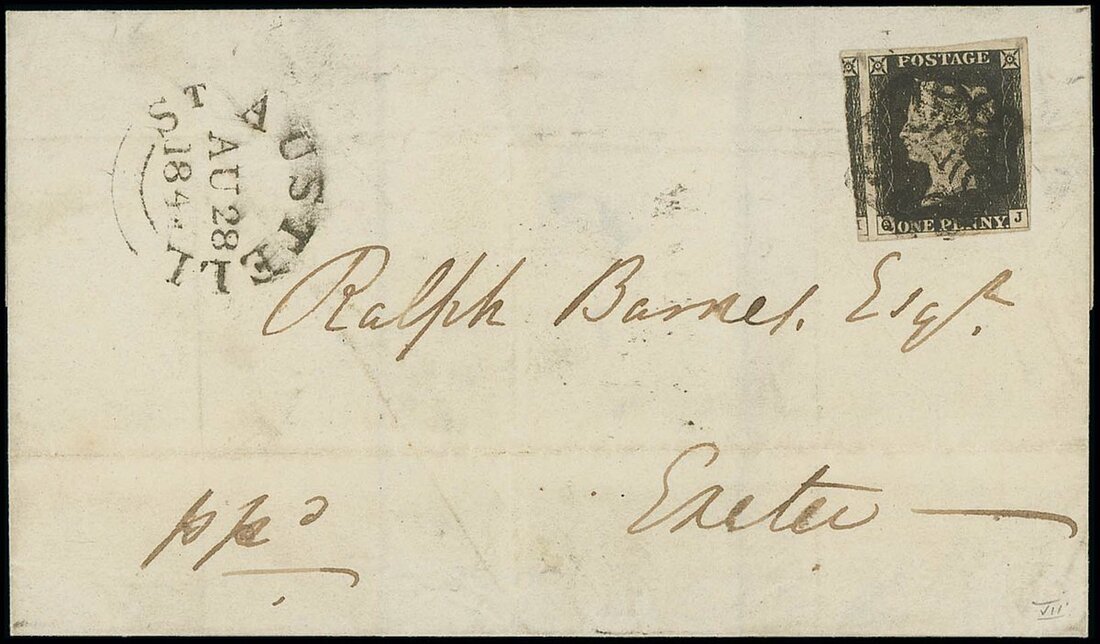 ST AUSTELL
AU 28
184
POSTAGE
Q ONE PENNY. J
Ralph Barnes. Esqr.
ppd
Exeter
VII